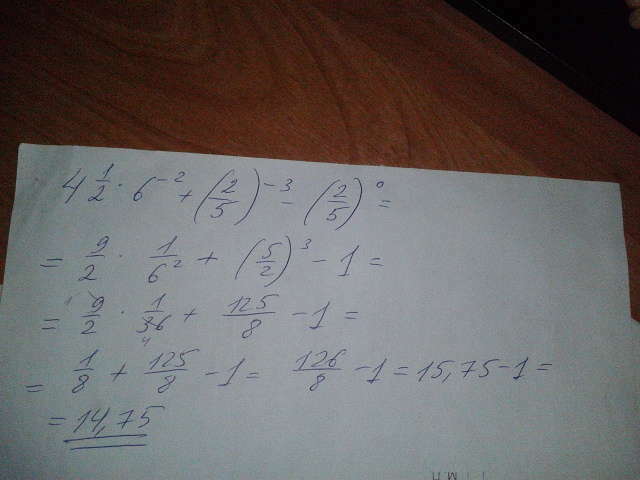 4 1/2 · 6^-2 + (2/5)^-3 - (2/5)^0 =
= 9/2 · 1/6^2 + (5/2)^3 - 1 =
= 9/2 · 1/36 + 125/8 - 1 =
= 1/8 + 125/8 - 1 = 126/8 - 1 = 15,75 - 1 =
= 14,75